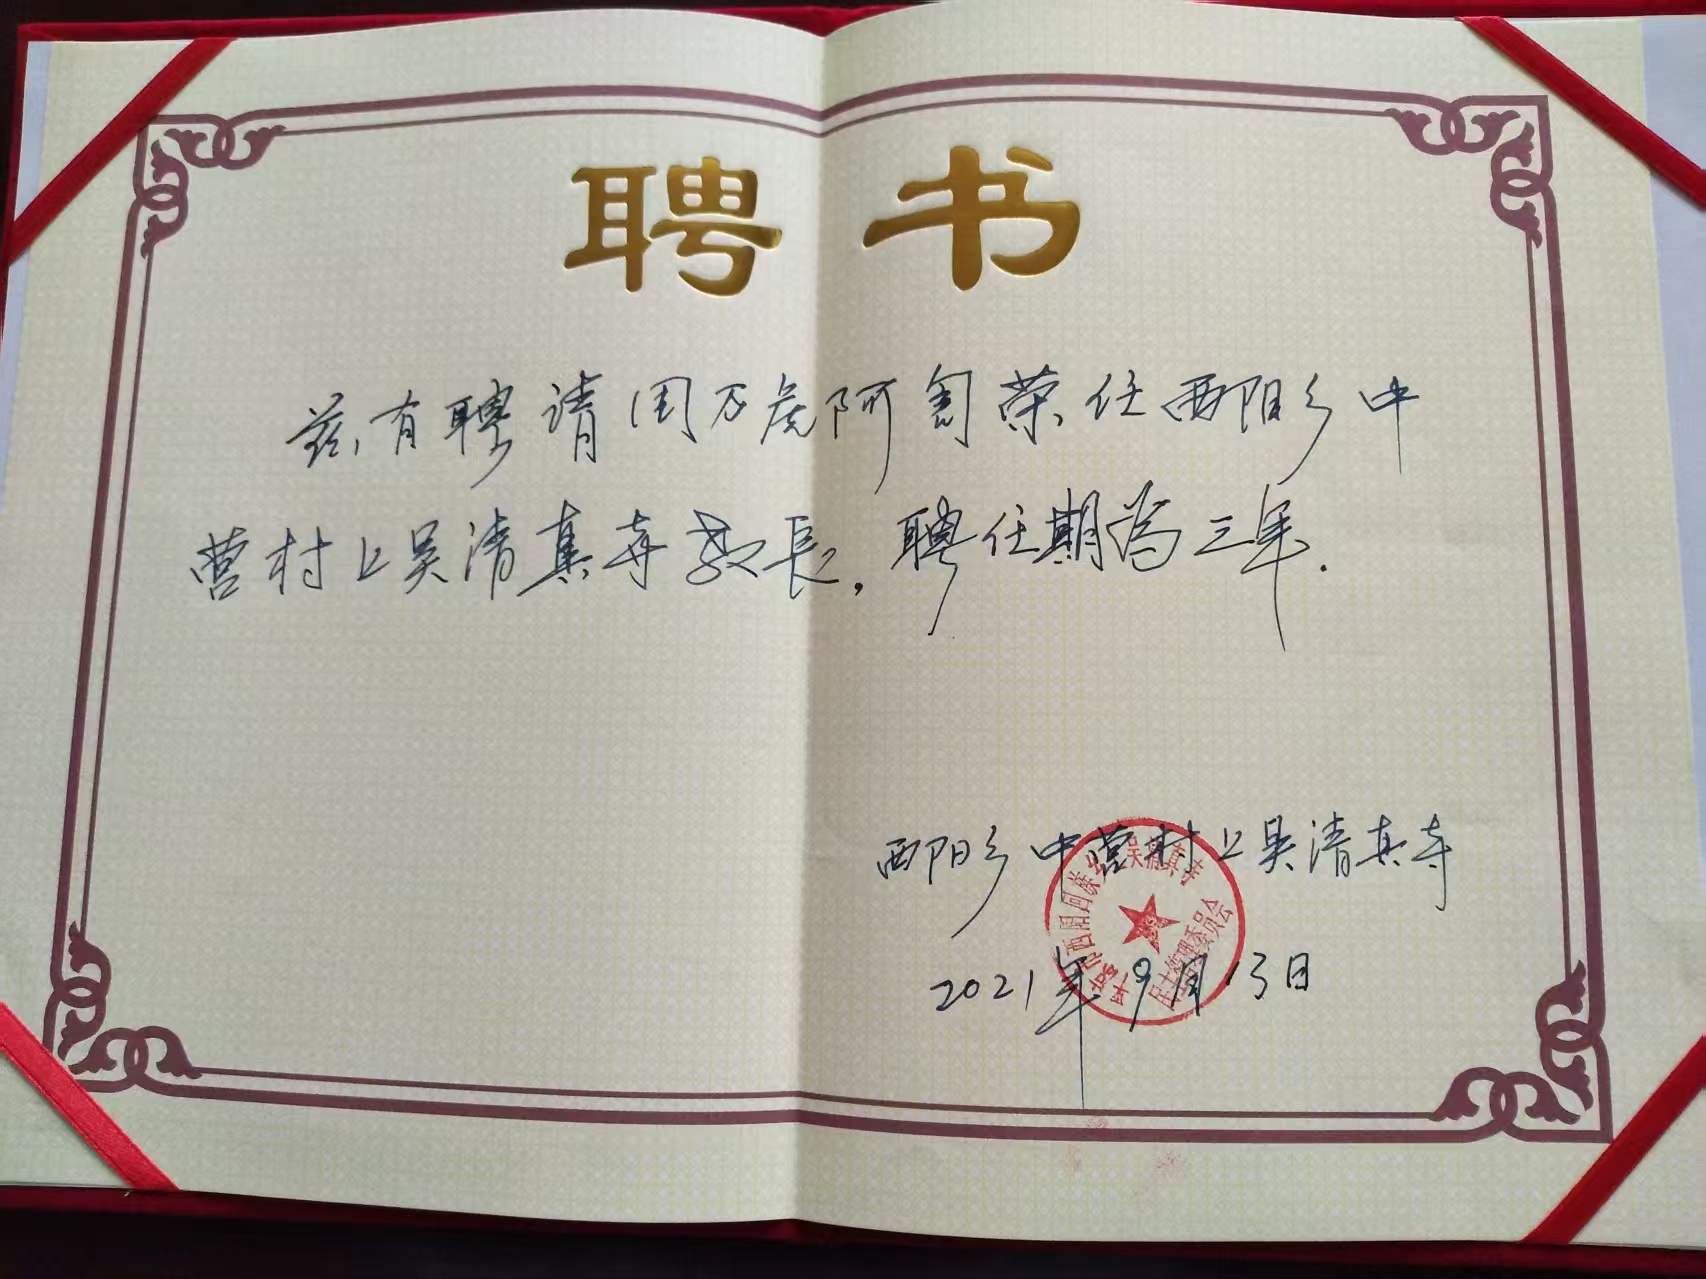 聘书
兹有聘请周万虎阿訇荣任西阳乡中
营村上吴清真寺教长，聘任期为三年.
西阳乡中营村上吴清真寺
西阳回族乡上吴清真寺
民主管理委员会
2021年9月13日